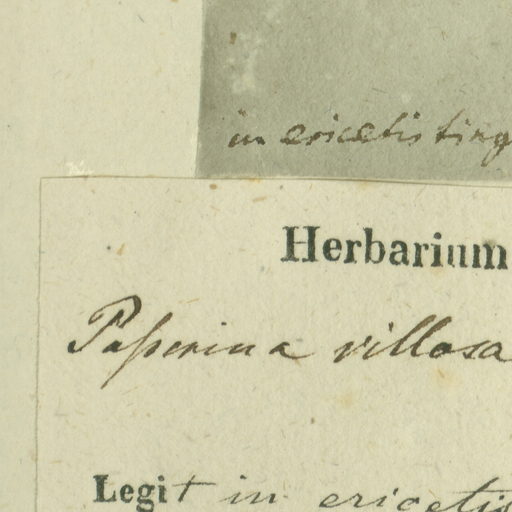 in ericetis ting
Herbarium
Paſserina villosa
Legit in ericetis